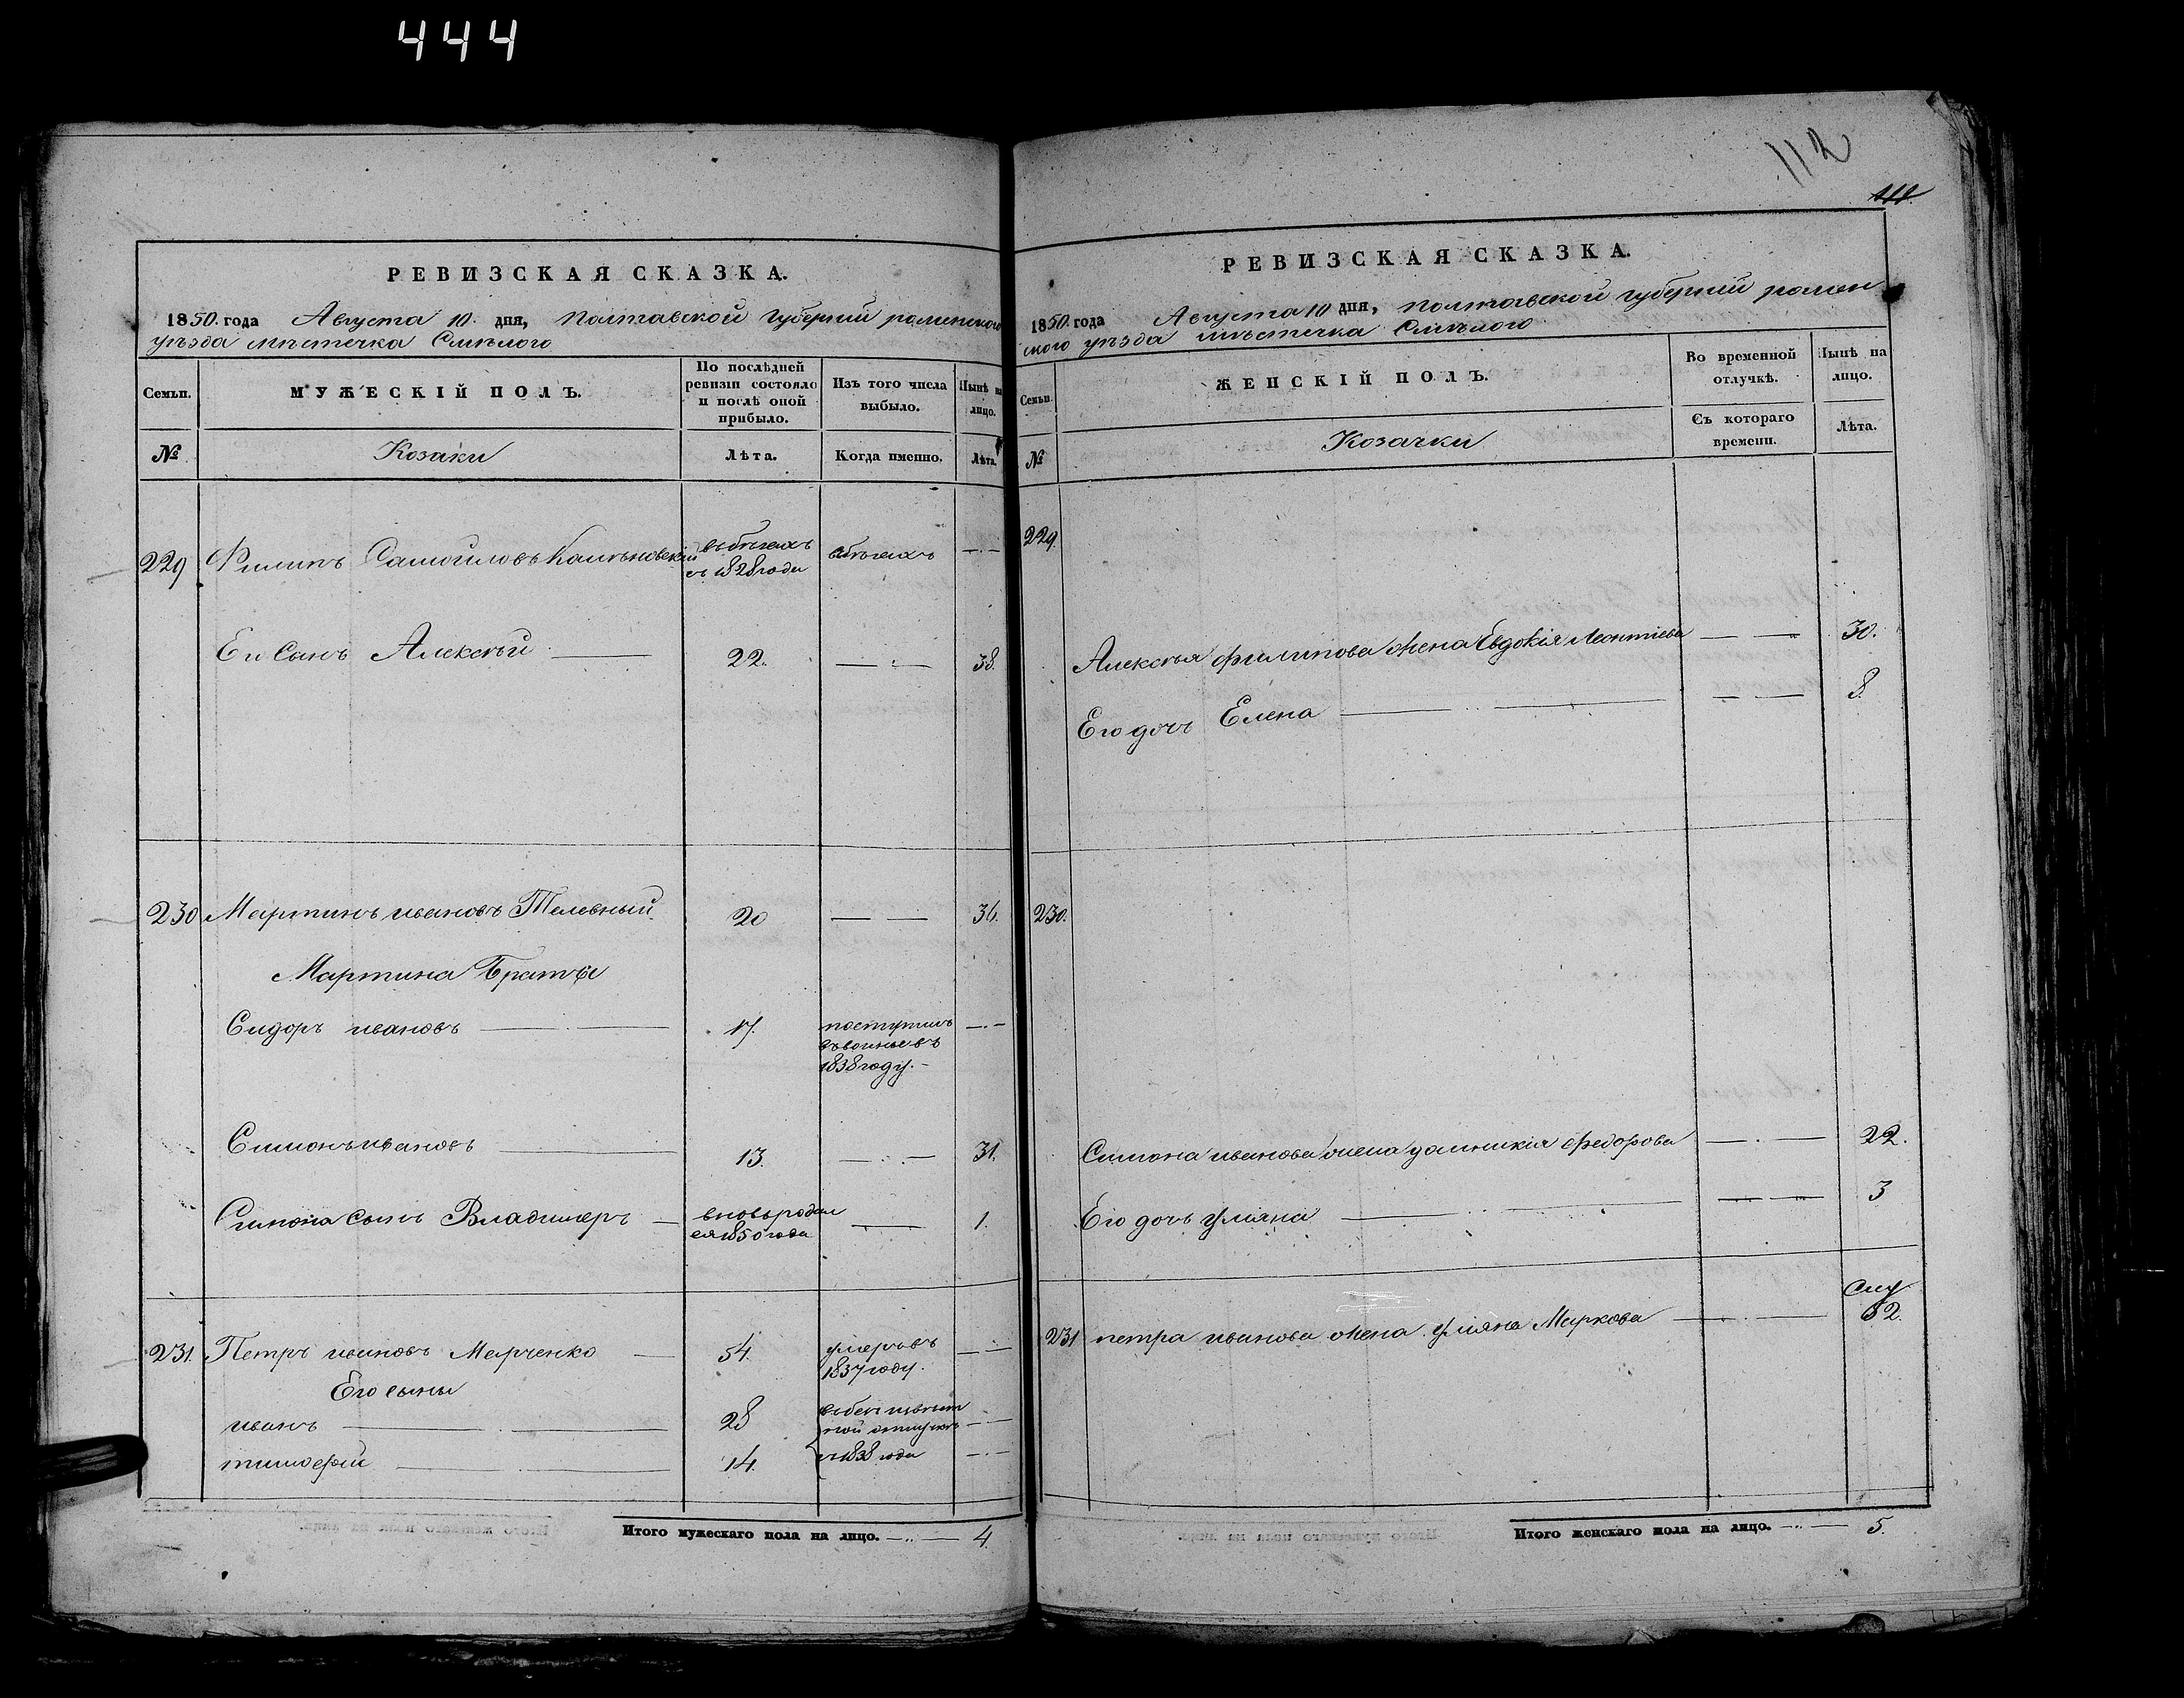 444
РЕВИЗСКАЯ СКАЗКА.
1850. года Августа 10. дня, Полтавской губерніи роменского
уѣзда мѣстечка Смѣлого
Семьи.
МУЖЕСКІЙ ПОЛЪ.
По послѣдней
ревизіи состояло
и послѣ оной
прибыло.
Изъ того числа
выбыло.
Нынѣ на
лицо.
№
Козаки
Лѣта.
Когда именно.
Лѣта.
229 Филипъ Самойловъ въ бѣгахъ вбѣгахъ
съ 1828 года
Еги Сынъ Алексѣй 22. 38.
230 Мартинъ ивановъ Телевный. 20 36.
Мартина Братья
Сидоръ ивановъ 17. поступилъ
1838 году.
Симонъ ивановъ 13. 31.
Симона сынъ Владимеръ вновь родил 1.
ся 1850 года
231. Петръ ивановъ Марченко 54. умеръ въ
1837 году.
Его сыны
иванъ 28
тимофей 14. съ 1838 года
Итого мужескаго пола на лицо. 4.
112
111.
РЕВИЗСКАЯ СКАЗКА.
1850. года Августа 10 дня, полтавской губерніи ромен
ского уѣзда мѣстечка Смѣлого
Семьи.
ЖЕНСКІЙ ПОЛЪ.
Во временной
отлучкѣ.
Нынѣ на
лицо.
Съ котораго
времени.
Лѣта.
№
Козачки
229.
Алексѣя филипова жена Евдокія Леонтіева 30.
Его дочь Елена 8.
230.
Симона иванова жена федорова 22.
Его дочь Уліана 3
231 петра иванова жена Уліяна Маркова 62.
Итого женскаго пола на лицо. 5.